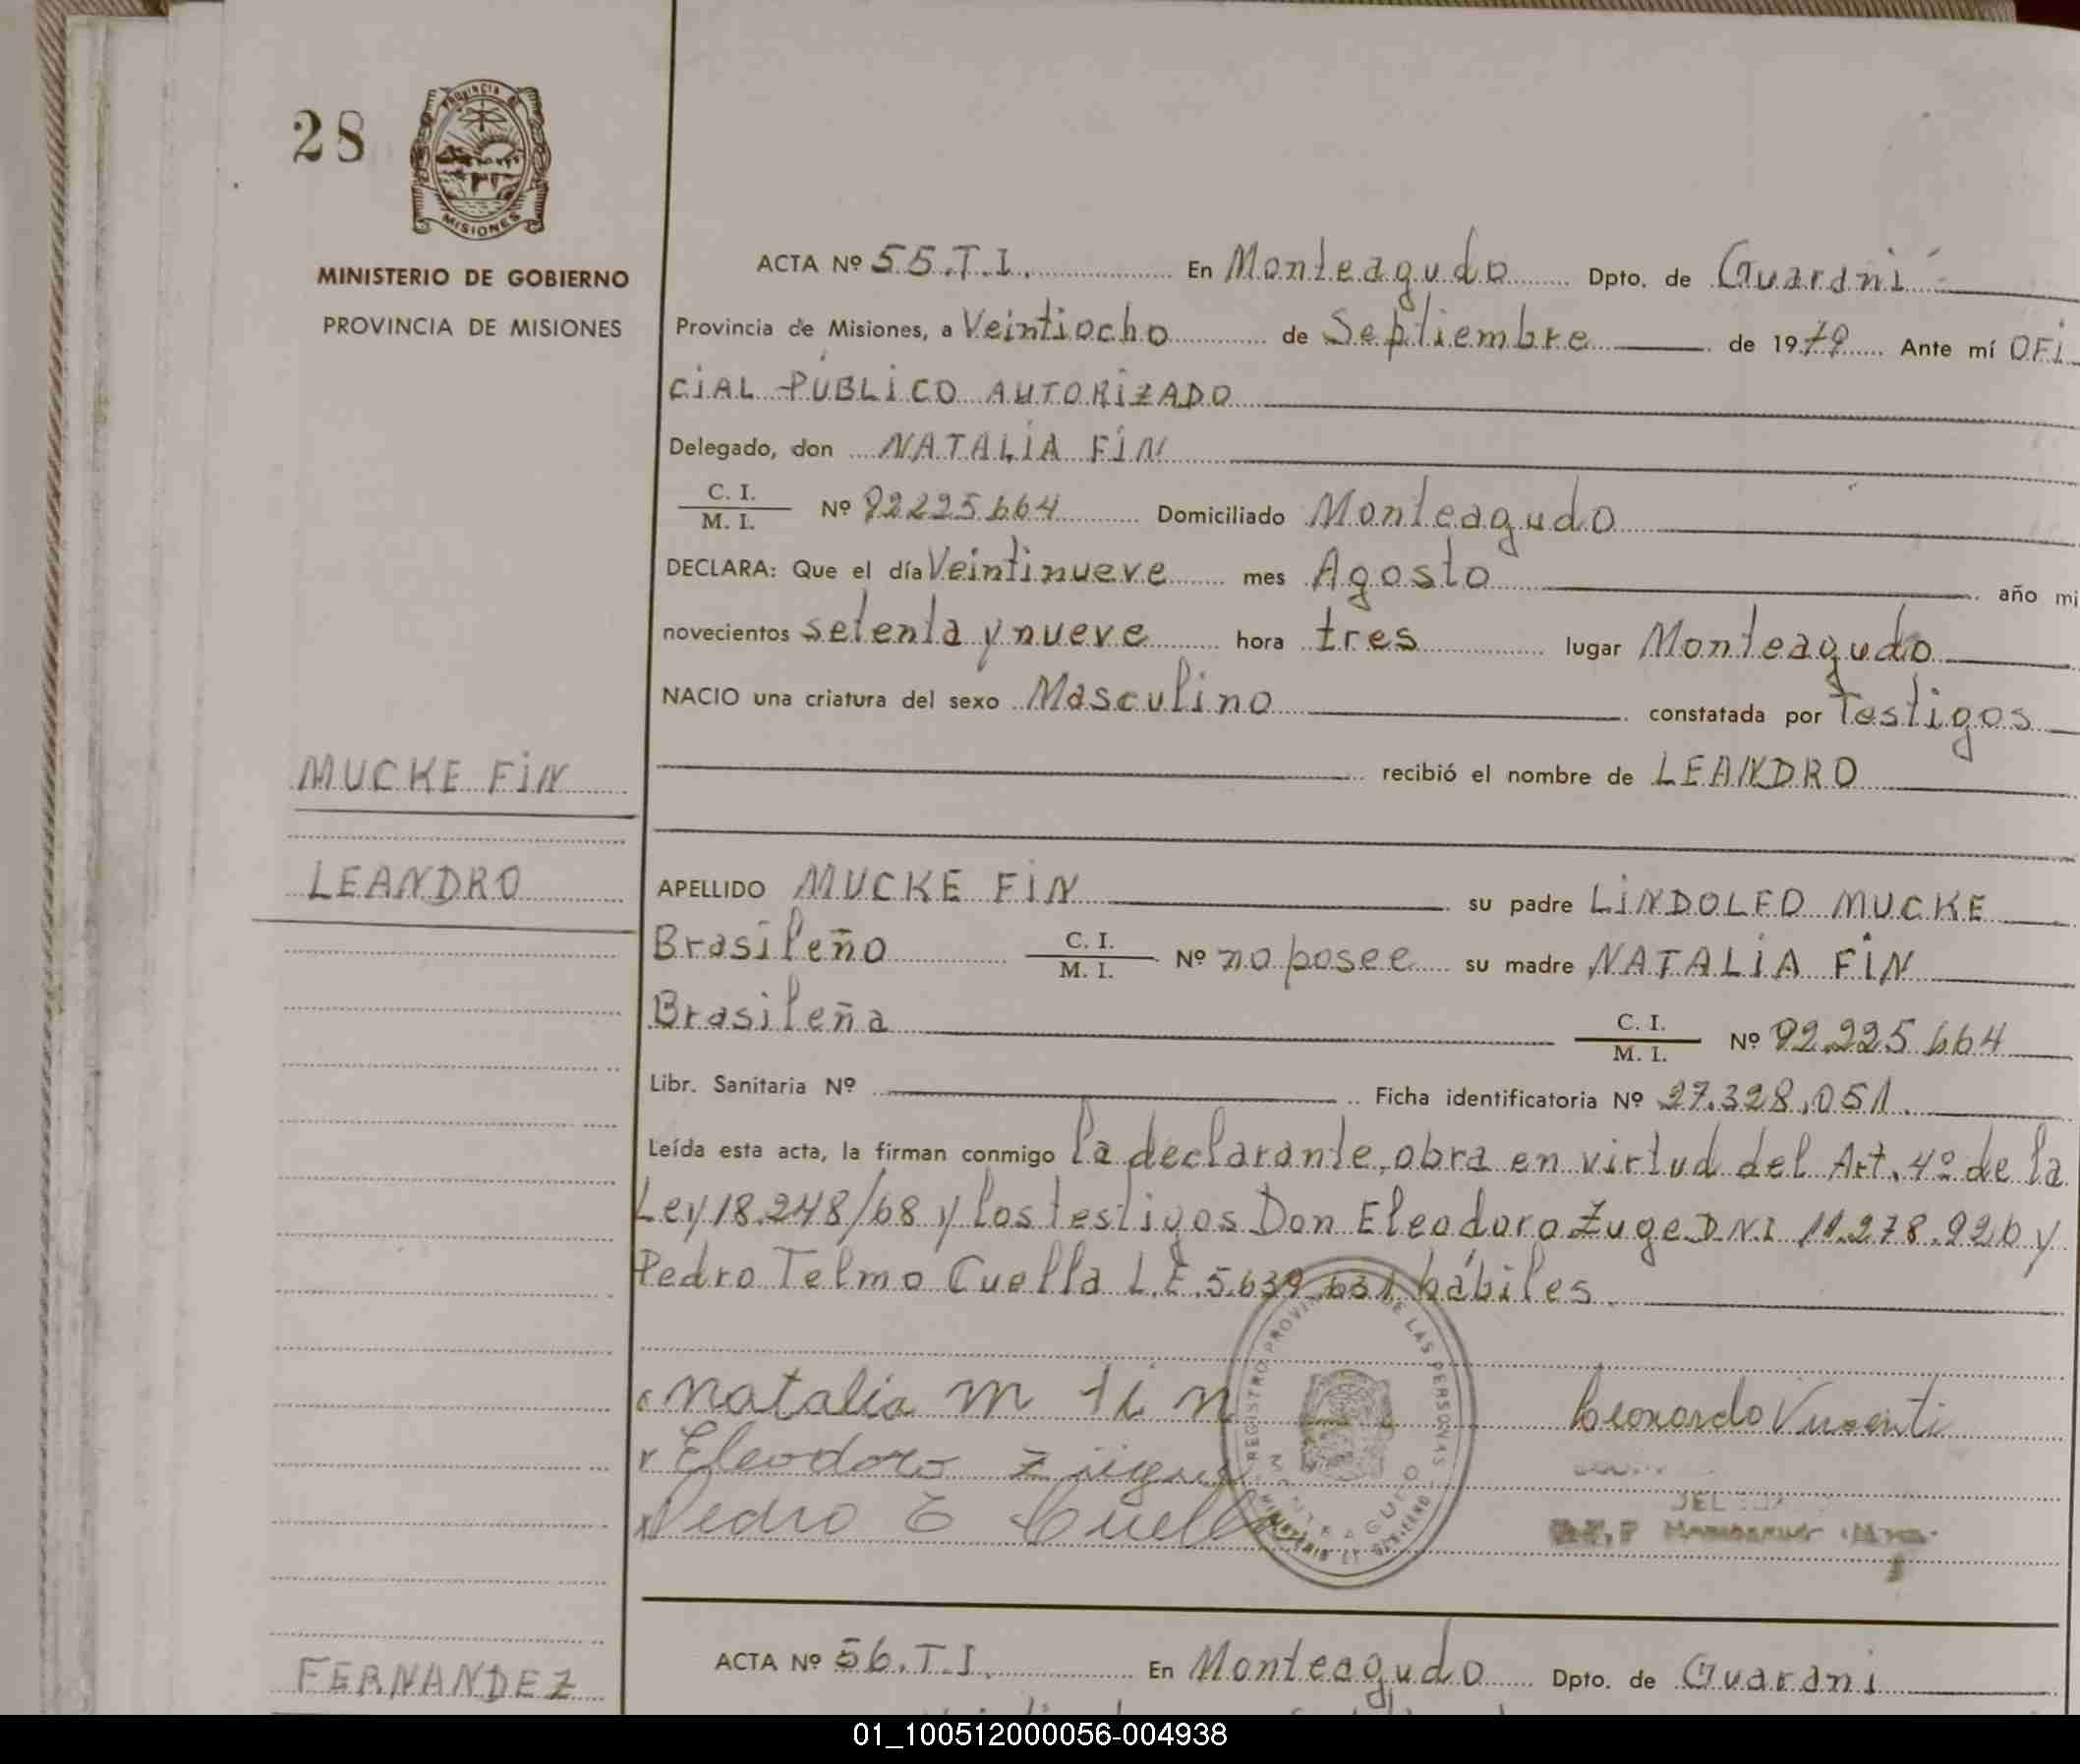 28
PROVINCIA DE
MISIONES
MINISTERIO DE GOBIERNO
PROVINCIA DE MISIONES
ACTA Nº 55.T.I. En Monteagudo Dpto. de Guaraní
Provincia de Misiones, a Veintiocho de Septiembre de 1979 Ante mí OFI
CIAL PÚBLICO AUTORIZADO
Delegado, don NATALIA FIN
C. I. / M. I. Nº 92225664 Domiciliado Monteagudo
DECLARA: Que el día Veintinueve mes Agosto año mi
novecientos setenta y nueve hora tres lugar Monteagudo
NACIO una criatura del sexo Masculino constatada por Testigos
MUCKE FIN
recibió el nombre de LEANDRO
LEANDRO
APELLIDO MUCKE FIN su padre LINDOLFO MUCKE
Brasileño C. I. / M. I. Nº no posee su madre NATALIA FIN
Brasileña C. I. / M. I. Nº 92.225.664
Libr. Sanitaria Nº Ficha identificatoria Nº 27.328.051
Leída esta acta, la firman conmigo la declarante, obra en virtud del Art. 4º de la
Ley 18.248/68 y los testigos Don Eleodoro Zuge D.N.I 11.278.926 y
Pedro Telmo Cuella L.E. 5.639.631 hábiles
Natalia M Fin
Eleodoro
Pedro Cuella
Leonardo Vicenti
REGISTRO DE LAS PERSONAS
ACTA Nº 56.T.I. En Monteagudo Dpto. de Guarani
FERNANDEZ
01_100512000056-004938